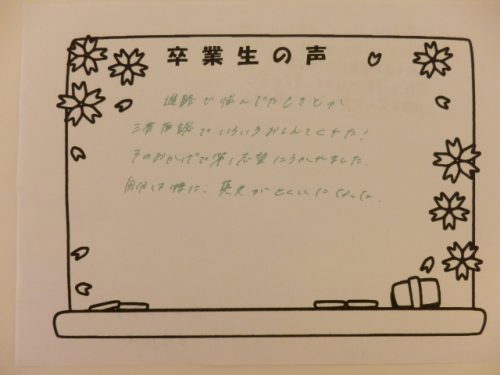 卒業生の声
進路で悩んでたときとか、
三者面談でいろいろおしえてくれた!
そのおかげで第1志望にうかりました。
自分は特に、英文がとくいになった。